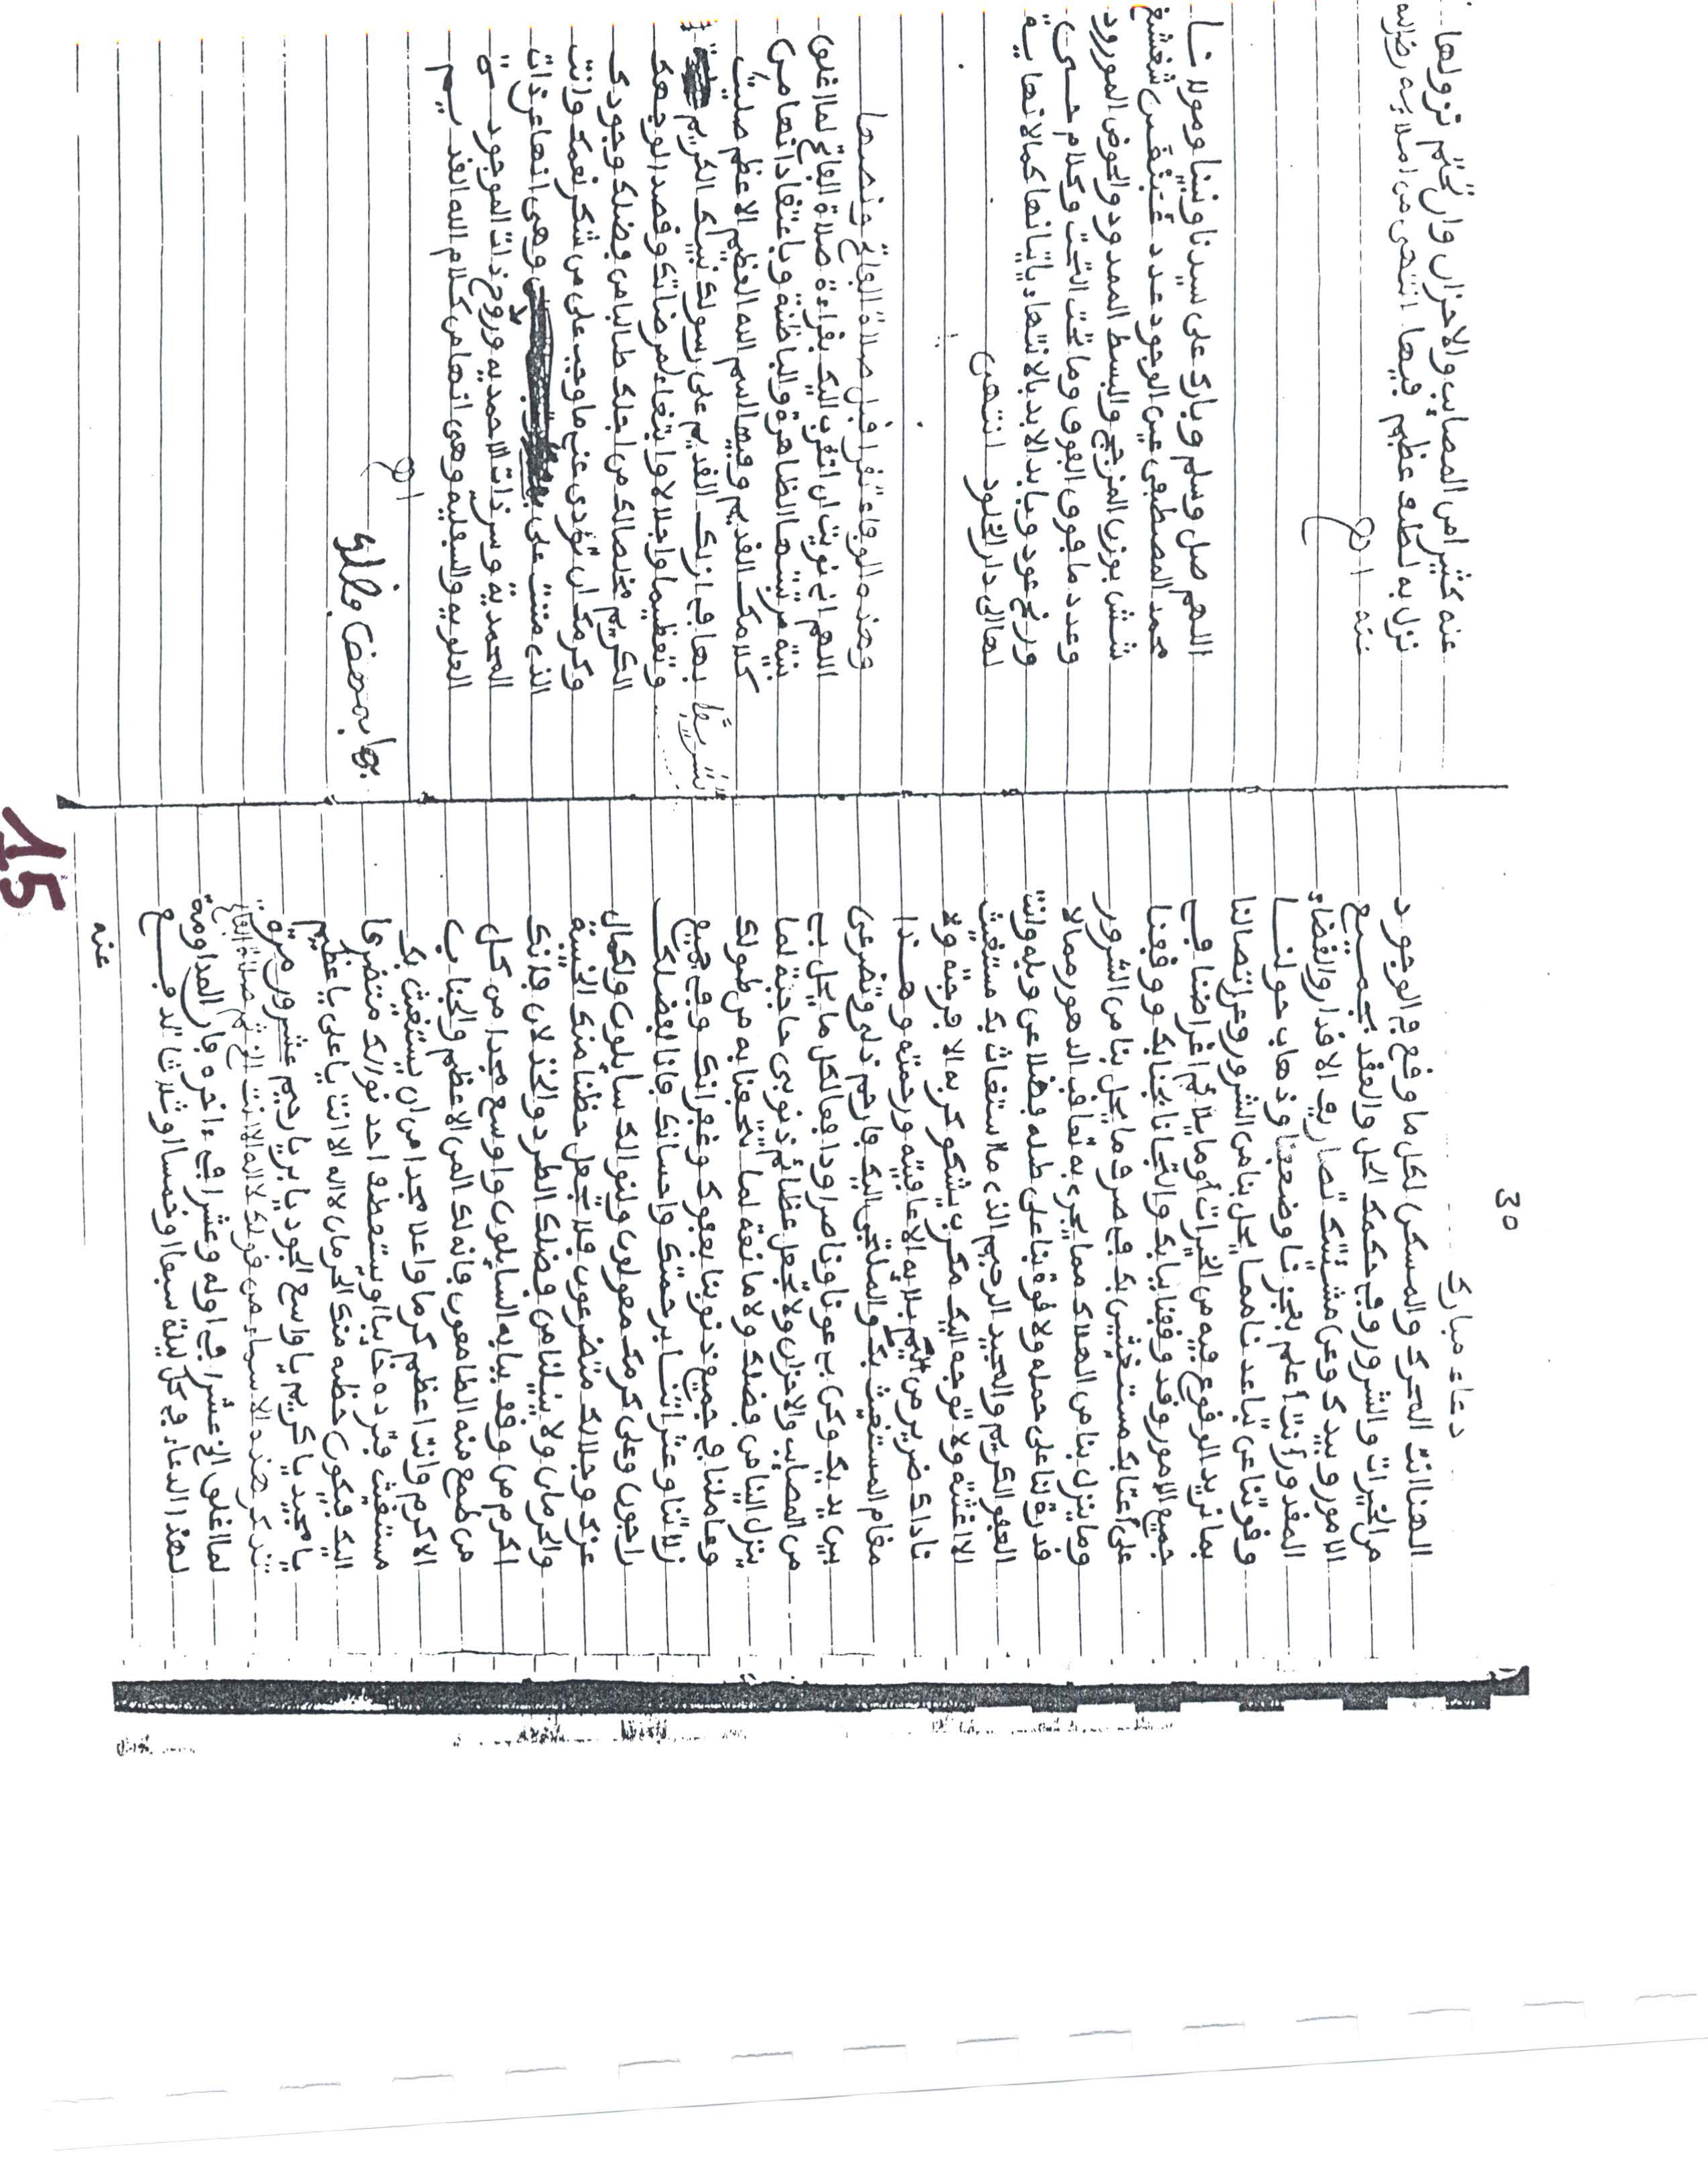 30
دعاء مبارك
اللهم انت المحرك والمسكن لكل ما وقع في الوجود
من الخيرات والشرور وفي حكمك الحل والعقد لجميع
الامور وبيدك وعن مشيئتك تصاريف الاقدار والقضاء
المقدور وأنت أعلم بعجزنا وضعفنا وذهاب حولنا
وقوتنا عن تباعدنا مما يحل بنا من الشرور وعن اتصالنا
بما نريد الوقوع فيه من الخيرات أو ما يلائم اغراضنا في
جميع الامور وقد وقفنا ببابك والتجأنا لجنابك ووقفنا
على أعتابك مستغيثين بك في صرف ما يحل بنا من الشرور
وما ينزل بنا من الهلاك مما يجري به تعاقب الدهور مما لا
قدرة لنا على حمله ولا قوة بنا على طله فضلا عن وبله وانت
العفو الكريم والمجيد الرحيم الذي ما استغاث بك مستغيث
الا اغثته ولا توجه اليك مكروب يشكو كربه الا فرجته ولا
ناداك ضرير من أليم بلائه الا عافيته ورحمته وهذا
مقام المستغيث بك والملتجئ اليك فارحم ذلي وتضرعي
بين يديك وكن لي عونا وناصرا ودافعا لكل ما يحل بي
من المصائب والاحزان ولا تجعل عظائم ذنوبي حاجبة لما
ينزل الينا من فضلك ولا مانعة لما تتحفنا به من طولك
وعاملنا في جميع ذنوبنا بعفوك وغفرانك وفي جميع
زلاتنا وعثراتنا برحمتك واحسانك فانا لفضلك
راجون وعلى كرمك معولون ولنوالك سايلون ولكمال
عزك وجلالك متضرعون فلا تجعل حظنا منك الخيبة
والحرمان ولا تنيلنا من فضلك الطرد والخذلان فانك
اكرم من وقف ببابه السايلون واوسع مجدا من كل
من طمع فيه الطامعون فانه لك المن الاعظم والجناب
الاكرم وانت اعظم كرما واعلا مجدا من ان يستغيث بك
مستغيث فترده خايبا ويستعطف احد نوالك متضرعا
اليك فيكون حظه منك الحرمان لا اله الا انت يا علي يا عظيم
يا مجيد يا كريم يا واسع الجود يا بر يا رحيم عشرون مرة
تذكر هذه الاسماء من قولك لا اله الا انت الخ ثم صلاة الفاتح
لما اغلق الخ عشرا في اوله وعشرا في ءاخره فان المداومة
لهذا الدعاء في كل ليلة سبعا او خمسا او ثلاثا تدفع
عنه
عنه كثيرا من المصائب والاحزان وان تحتم نزولها
نزل به لطف عظيم فيها انتهى من املائه رضي الله
عنه اهـ
اللهم صل وسلم وبارك على سيدنا ونبينا ومولانا
محمد المصطفى عين الوجود عدد
شش بوزن المزجج والبسط الممدود والحوض المورود
وعدد ما فوق الفوق وما تحت التحت وكلام شيء
ورنخ عود وبابد الابد بالانتهاء يا من انتهاء كمالاتها يه
لهالى دار الخلود انتهى
وهذه الوفاء تقرا قبل صلاة الفاتح ونصها
اللهم اني نويت ان اتقرب اليك بقراءة صلاة الفاتح لما اغلق
بنية مرتبتها الظاهرة والباطنة وباعتقاد انها من
كلامك القديم وفيها اسم الله العظيم الاعظم صليت
بها في ازلك القديم على رسولك نبيك الكريم
وتعظيما واجلالا وابتغاء لمرضاتك وقصدا لوجهك
الكريم مخلصا لك من اجلك طالبا من فضلك وجودك
وكرمك ان تؤدي عني ما وجب علي من شكر نعمك وانت
الذي مننت علي وهي انها عز ذات
المحمدية وسر ذات الاحمدية وروح ذات الموجودية
العلويه والسفليه وهي انها من كلام الله القديم
اهـ